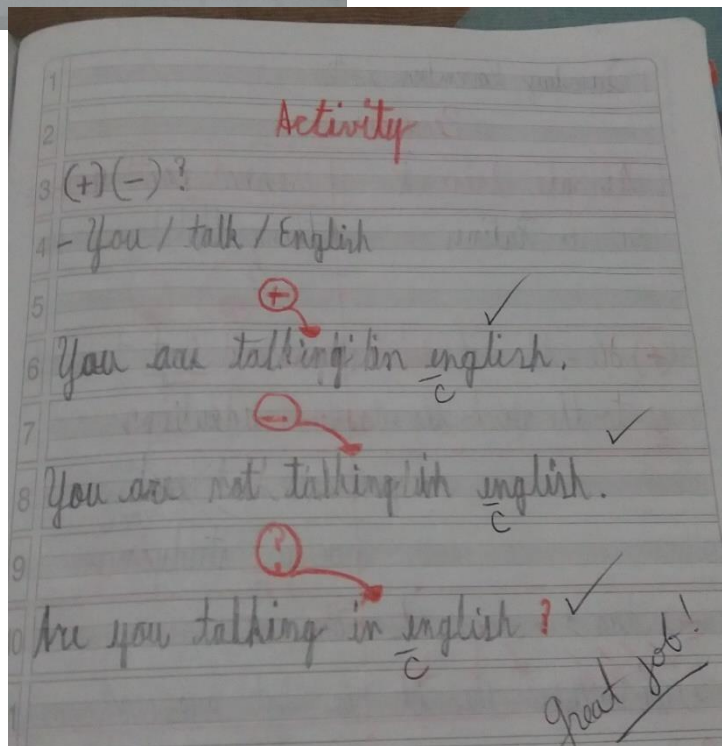 1
2 Activity
3 (+) (-) ?
4 - You / talk / English
5 +
6 You are talking in english.
C
7 -
8 You are not talking in english.
C
9 ?
10 Are you talking in english ?
C
Great job!